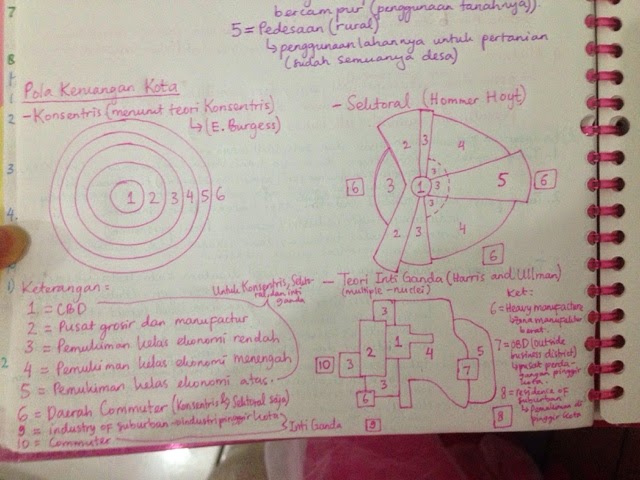 bercampur (penggunaan tanahnya)).
5 = Pedesaan (rural)
↳ penggunaan lahannya untuk pertanian
(sudah semuanya desa)
Pola Keruangan Kota
- Konsentris (menurut teori Konsentris)
↳ (E. Burgess)
1 2 3 4 5 6
- Sektoral (Hommer Hoyt)
2 3 4
3 1 3 5
3
3
2 3 4
6 6
6
Keterangan :
Untuk Konsentris, Sekto-
ral, dan inti
ganda
1 = CBD
2 = Pusat grosir dan manufactur
3 = Pemukiman kelas ekonomi rendah
4 = Pemukiman kelas ekonomi menengah
5 = Pemukiman kelas ekonomi atas.
6 = Daerah Commuter (Konsentris & Sektoral saja)
9 = industry of suburban → industri pinggir kota
10 = Commuter
Inti Ganda
- Teori Inti Ganda (Harris and Ullman)
(multiple-nuclei)
3
1
2
3
4
5
7
3
6
10
9
8
Ket:
6 = Heavy manufacture
↳ zona manufaktur
berat.
7 = OBD (outside
business district)
↳ pusat perda-
gangan pinggir
kota.
8 = residence of
suburban
↳ Pemukiman di
pinggir kota
7
8
1
2
3
4.
2